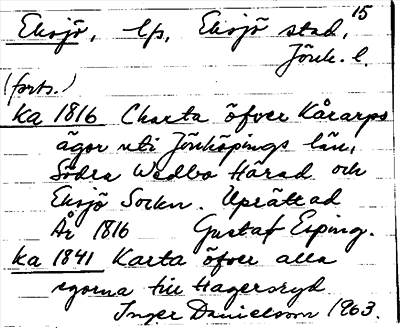 15
Eksjö, lfs, Eksjö stad,
Jönk. l.
(forts.)
ka 1816 Charta öfver Kårarps
ägor uti Jönköpings län,
Södra Wedbo Härad och
Eksjö Sockn. Upprättad
År 1816 Gustaf Esping.
ka 1841 Karta öfver alla
egorna till Hagersryd
Inger Danielsson 1963.